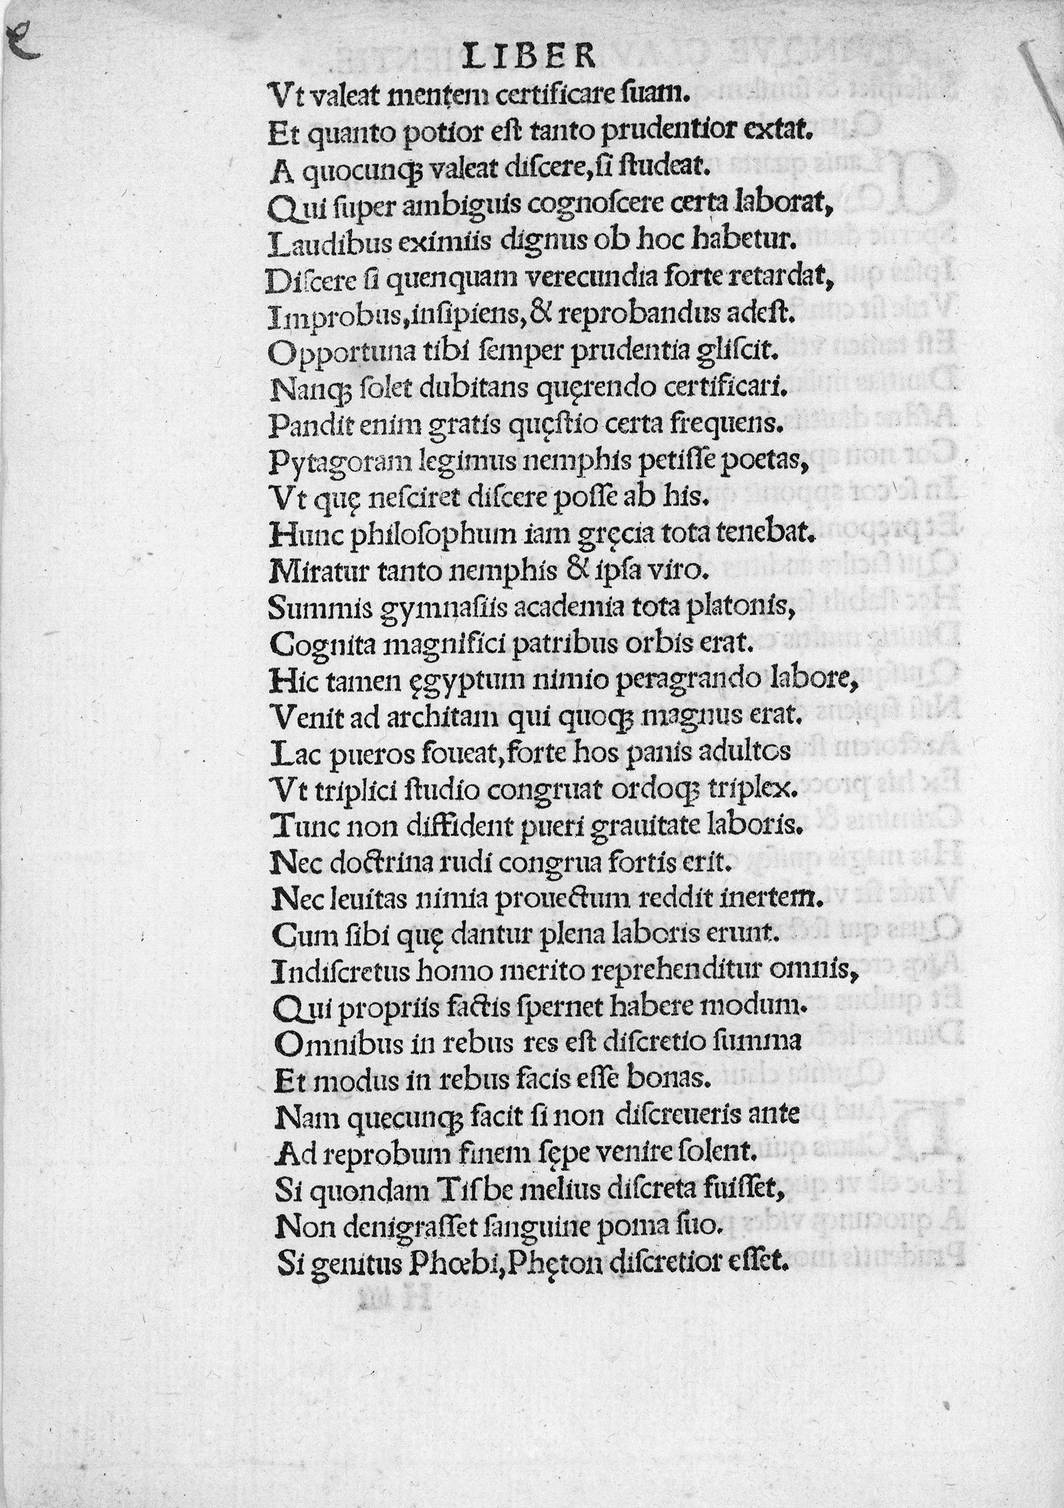 LIBER
Vt valeat mentem certificare ſuam.
Et quanto potior eſt tanto prudentior extat.
A quocunqꝫ valeat diſcere, ſi ſtudeat.
Qui ſuper ambiguis cognoſcere certa laborat,
Laudibus eximiis dignus ob hoc habetur.
Diſcere ſi quenquam verecundia forte retardat,
Improbus, inſipiens, & reprobandus adeſt.
Opportuna tibi ſemper prudentia gliſcit.
Nanqꝫ ſolet dubitans quęrendo certificari.
Pandit enim gratis quęſtio certa frequens.
Pytagoram legimus nemphis petiſſe poetas,
Vt quę neſciret diſcere poſſe ab his.
Hunc philoſophum iam gręcia tota tenebat.
Miratur tanto nemphis & ipſa viro.
Summis gymnaſiis academia tota platonis,
Cognita magnifici patribus orbis erat.
Hic tamen ęgyptum nimio peragrando labore,
Venit ad architam qui quoqꝫ magnus erat.
Lac pueros foueat, forte hos panis adultos
Vt triplici ſtudio congruat ordoqꝫ triplex.
Tunc non diffident pueri grauitate laboris.
Nec doctrina rudi congrua fortis erit.
Nec leuitas nimia prouectum reddit inertem.
Cum ſibi quę dantur plena laboris erunt.
Indiſcretus homo merito reprehenditur omnis,
Qui propriis factis ſpernet habere modum.
Omnibus in rebus res eſt diſcretio ſumma
Et modus in rebus facis eſſe bonas.
Nam quecunqꝫ facit ſi non diſcreueris ante
Ad reprobum finem ſępe venire ſolent.
Si quondam Tiſbe melius diſcreta fuiſſet,
Non denigraſſet ſanguine poma ſuo.
Si genitus Phœbi, Phęton diſcretior eſſet.